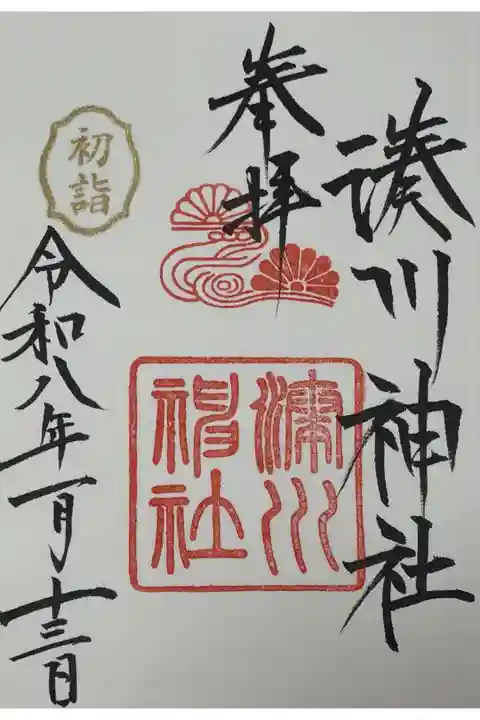 湊川神社
奉拝
湊川
神社
初詣
令和八年一月十三日